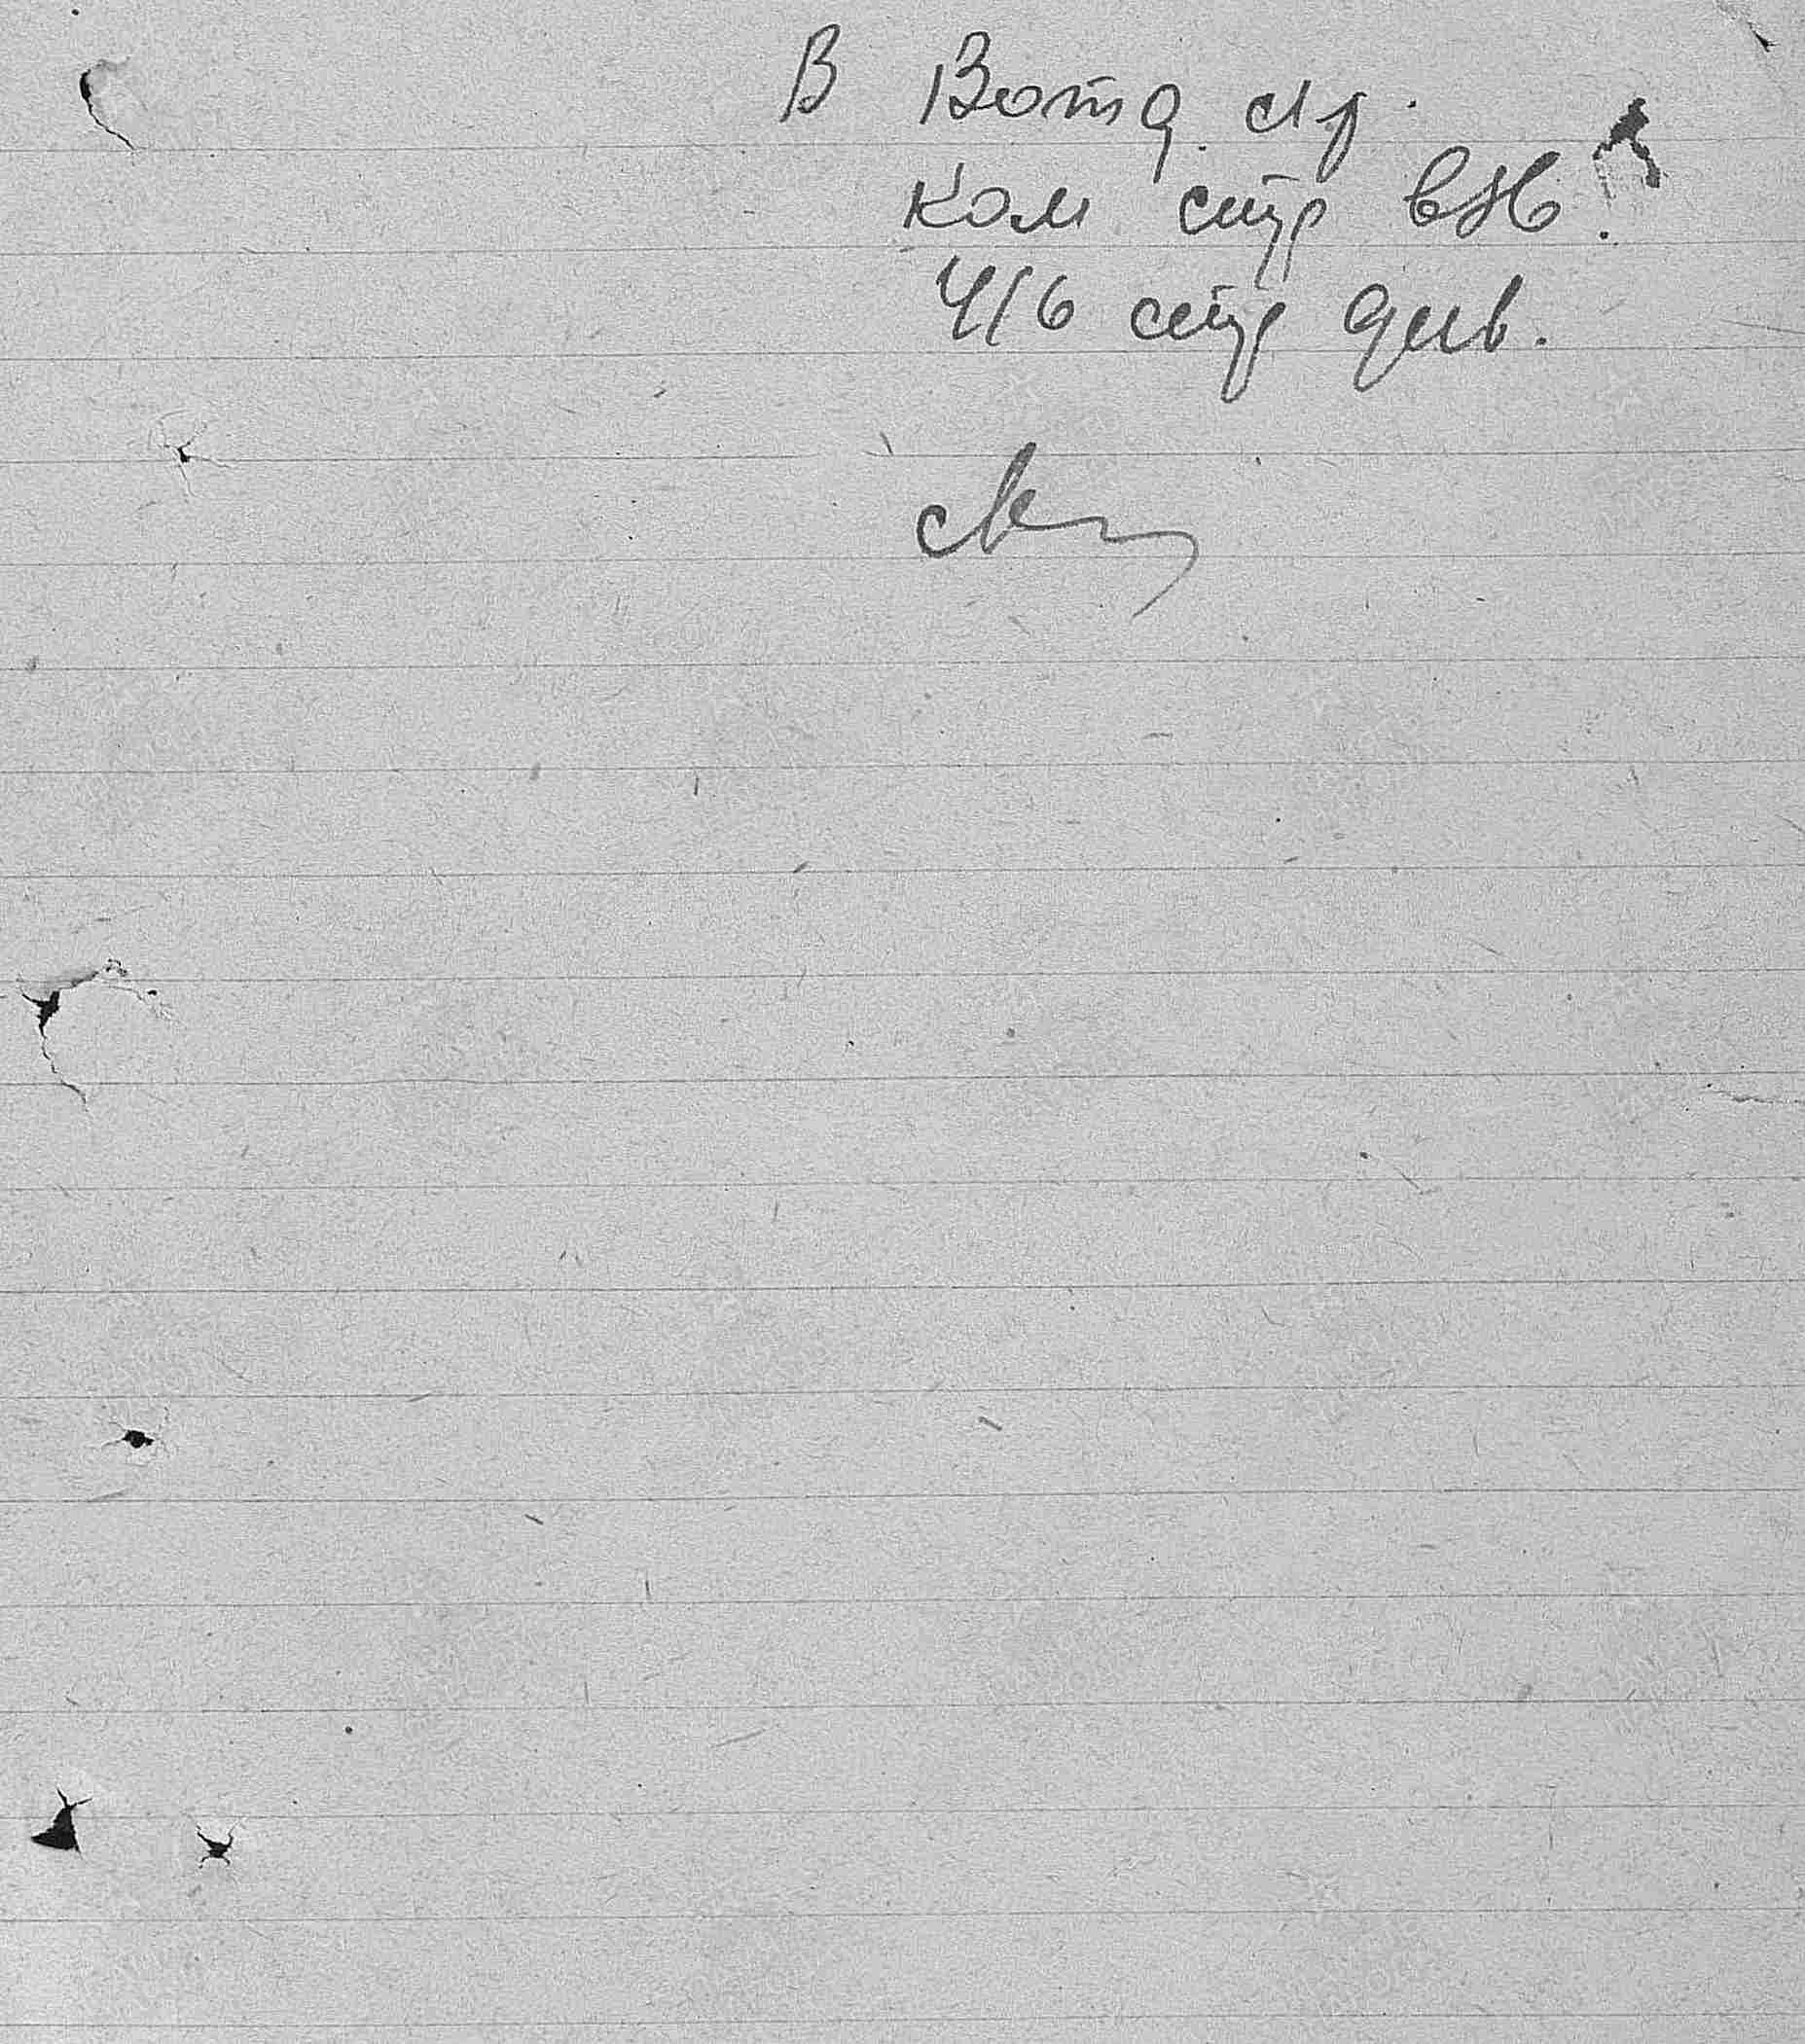 В Вотд. Ар.
Ком стр взв.
416 стр див.